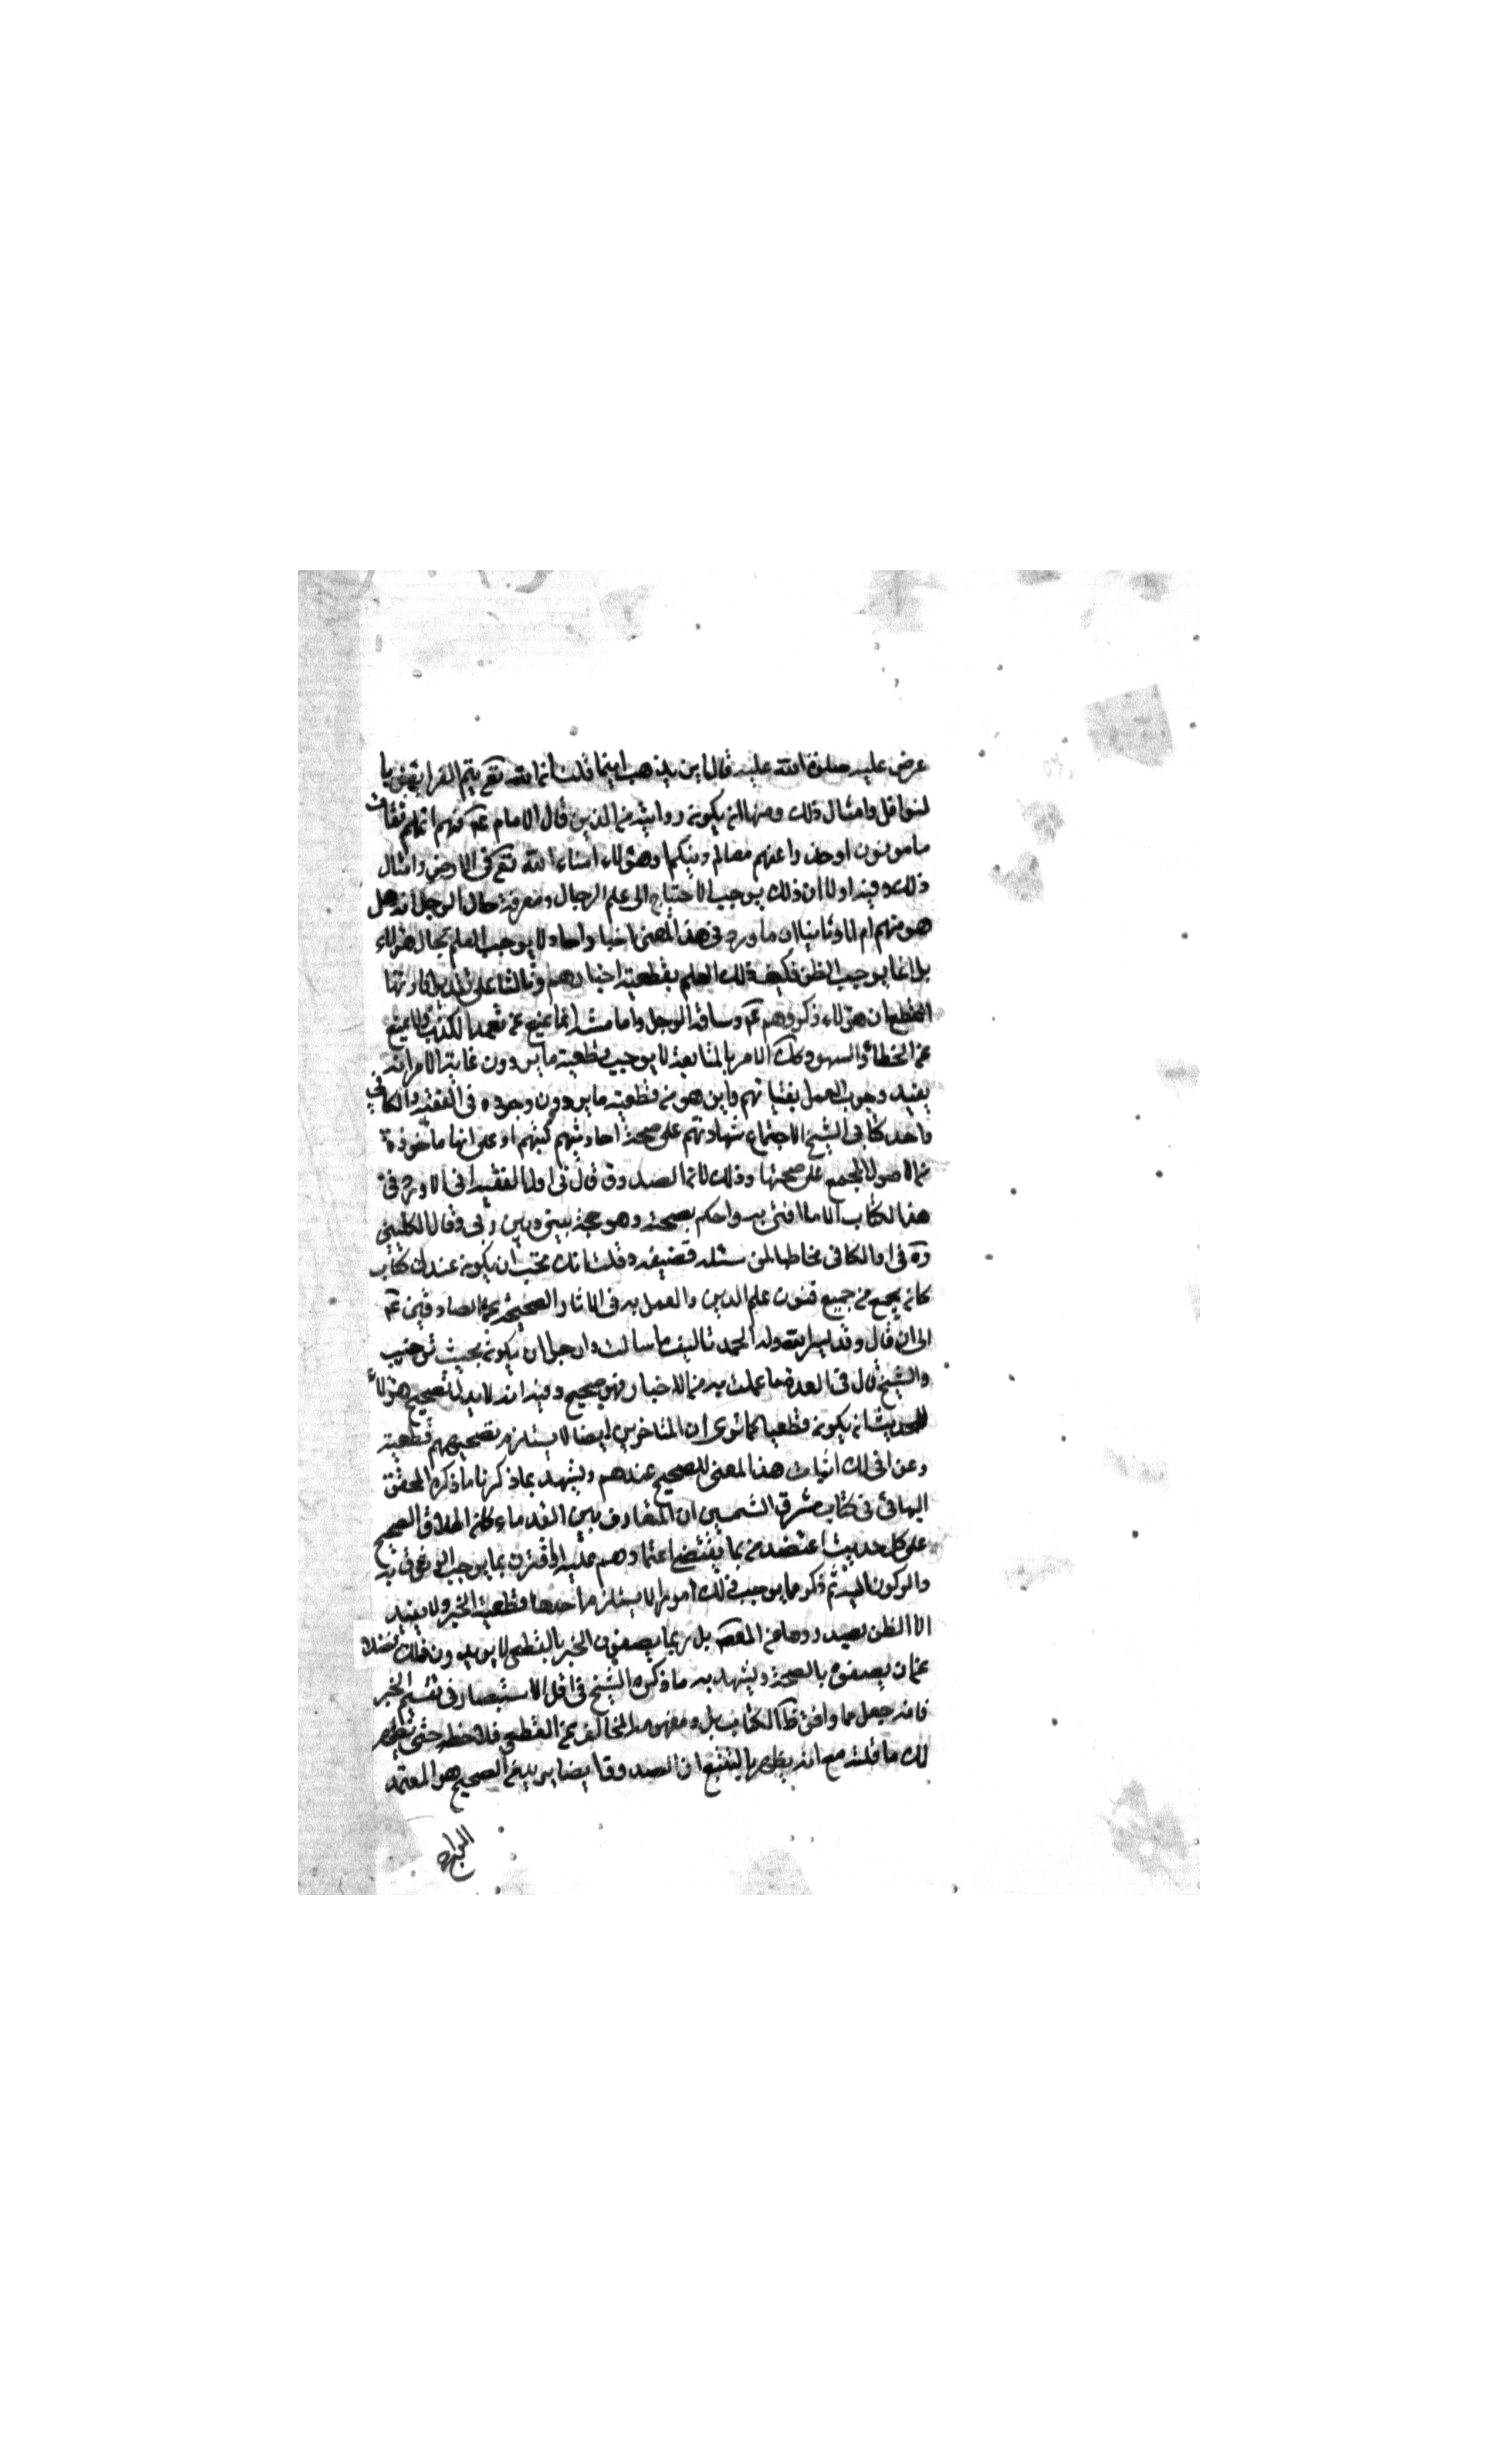 عرض عليه صلوة الله عليه قال اين يذهب اينما قلت ان الله تع يتم الفرايض با
لنوافل وامثال ذلك ومنها ان يكون روايته من الذين قال الامام عم فيهم انهم ثقات
مامونون او خذوا عنهم معالم دينكم او هؤلاء امناء الله تع فى الارض وامثال
ذلك وفيه اولا ان ذلك يوجب الاحتياج الى علم الرجال ومعرفة حال الرجل انه هل
هو منهم ام لا وثانيا ان ما ورد فى هذا المعنى اخبار احاد لا يوجب العلم بحال هؤلاء
بل انما يوجب الظن فكيف ذلك العلم بقطعية اخبارهم وثالثا على تقدير افادتها
القطع ان هؤلاء ذكروهم عم وساقه الرجل واما منه انما يمنع عن تعمد الكذب ولا يمنع
عن الخطاء والسهو وكك الامر بالمتابعة لا يوجب قطعية ما يروون غاية الامر انه
يفيد وجوب العمل بفتياتهم واين هو من قطعية ما يروون وجوده فى الفقيه والكافى
واحد كتابى الشيخ لاجتماع شهادتهم على صحة احاديث كتبهم او على انها ماخوذة
من الاصول المجمع على صحتها وذلك لان الصدوق قال فى اول الفقيه انى لا اورد فى
هذا الكتاب الا ما افتى به واحكم بصحته وهو حجة بينى وبين ربى وقال الكلينى
ره فى اول الكافى مخاطبا لمن سئله تصنيفه وقلت انك تحب ان يكون عندك كتاب
كاف يجمع من جميع فنون علم الدين والعمل به فى الاثار الصحيحة عن الصادقين عم
الى ان قال وقد يسر الله وله الحمد تاليف ما سالت وارجو ان يكون بحيث توخيت
والشيخ قال فى العدة ما عملت به من الاخبار فهو صحيح وفيه انه لا يدل تصحيح هؤلاء
للحديث ان يكون قطعيا كما ترى ان المتاخرين ايضا لا يستلزم تصحيحهم قطعيته
وعن انى لك اثبات هذا المعنى للصحيح عندهم ويشهد بما ذكرنا ما ذكره المحقق
البهائى فى كتاب مشرق الشمسين ان المتعارف بين القدماء كان اطلاق الصحيح
على كل حديث اعتضد بما يقتضى اعتمادهم عليه او اقترن بما يوجب الوثوق به
والركون اليه ثم ذكر مما يوجب ذلك امورا لا يستلزم احدها قطعية الخبر ولا يفيد
الا الظن بصدورها عن المعصوم بل ربما يصفون الخبر بالقطعى لا يريدون ذلك فضلا
عن ان يصفوه بالصحة ويشهد به ما ذكره الشيخ فى اول الاستبصار فى تقسيم الخبر
فانه جعل ما وافق ظاهر الكتاب بل ومفهومه المخالف من القطعى فلاحظه حتى يظهر
لك ما قلنه مع انه يظهر بالتتبع ان الصدوق ايضا يريد من الصحيح هو المعتمد